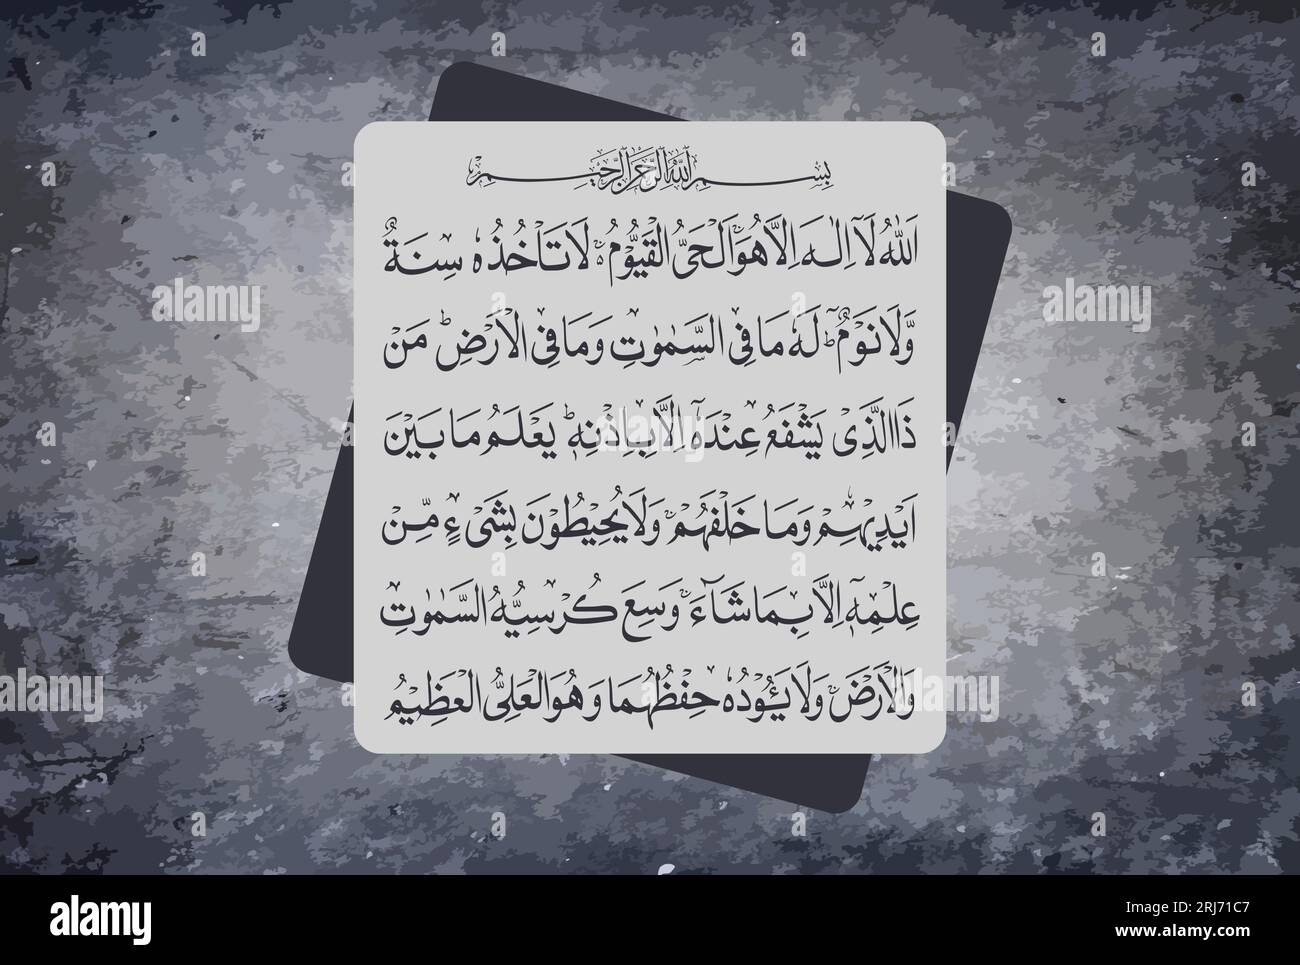 بِسْمِ اللهِ الرَّحْمٰنِ الرَّحِيْمِ
اَللّٰهُ لَآ اِلٰهَ اِلَّا هُوَۚ اَلْحَىُّ الْقَيُّوْمُ ەۚ لَا تَاْخُذُهٗ سِنَةٌ
وَّلَا نَوْمٌؕ لَهٗ مَا فِى السَّمٰوٰتِ وَمَا فِى الْاَرْضِؕ مَنْ
ذَا الَّذِىْ يَشْفَعُ عِنْدَهٗٓ اِلَّا بِاِذْنِهٖؕ يَعْلَمُ مَا بَيْنَ
اَيْدِيْهِمْ وَمَا خَلْفَهُمْۚ وَلَا يُحِيْطُوْنَ بِشَىْءٍ مِّنْ
عِلْمِهٖٓ اِلَّا بِمَا شَآءَۚ وَسِعَ كُرْسِيُّهُ السَّمٰوٰتِ
وَالْاَرْضَۚ وَلَا يَـــُٔوْدُهٗ حِفْظُهُمَا وَهُوَ الْعَلِىُّ الْعَظِيْمُ
alamy
alamy
Image ID: 2RJ71C7
www.alamy.com